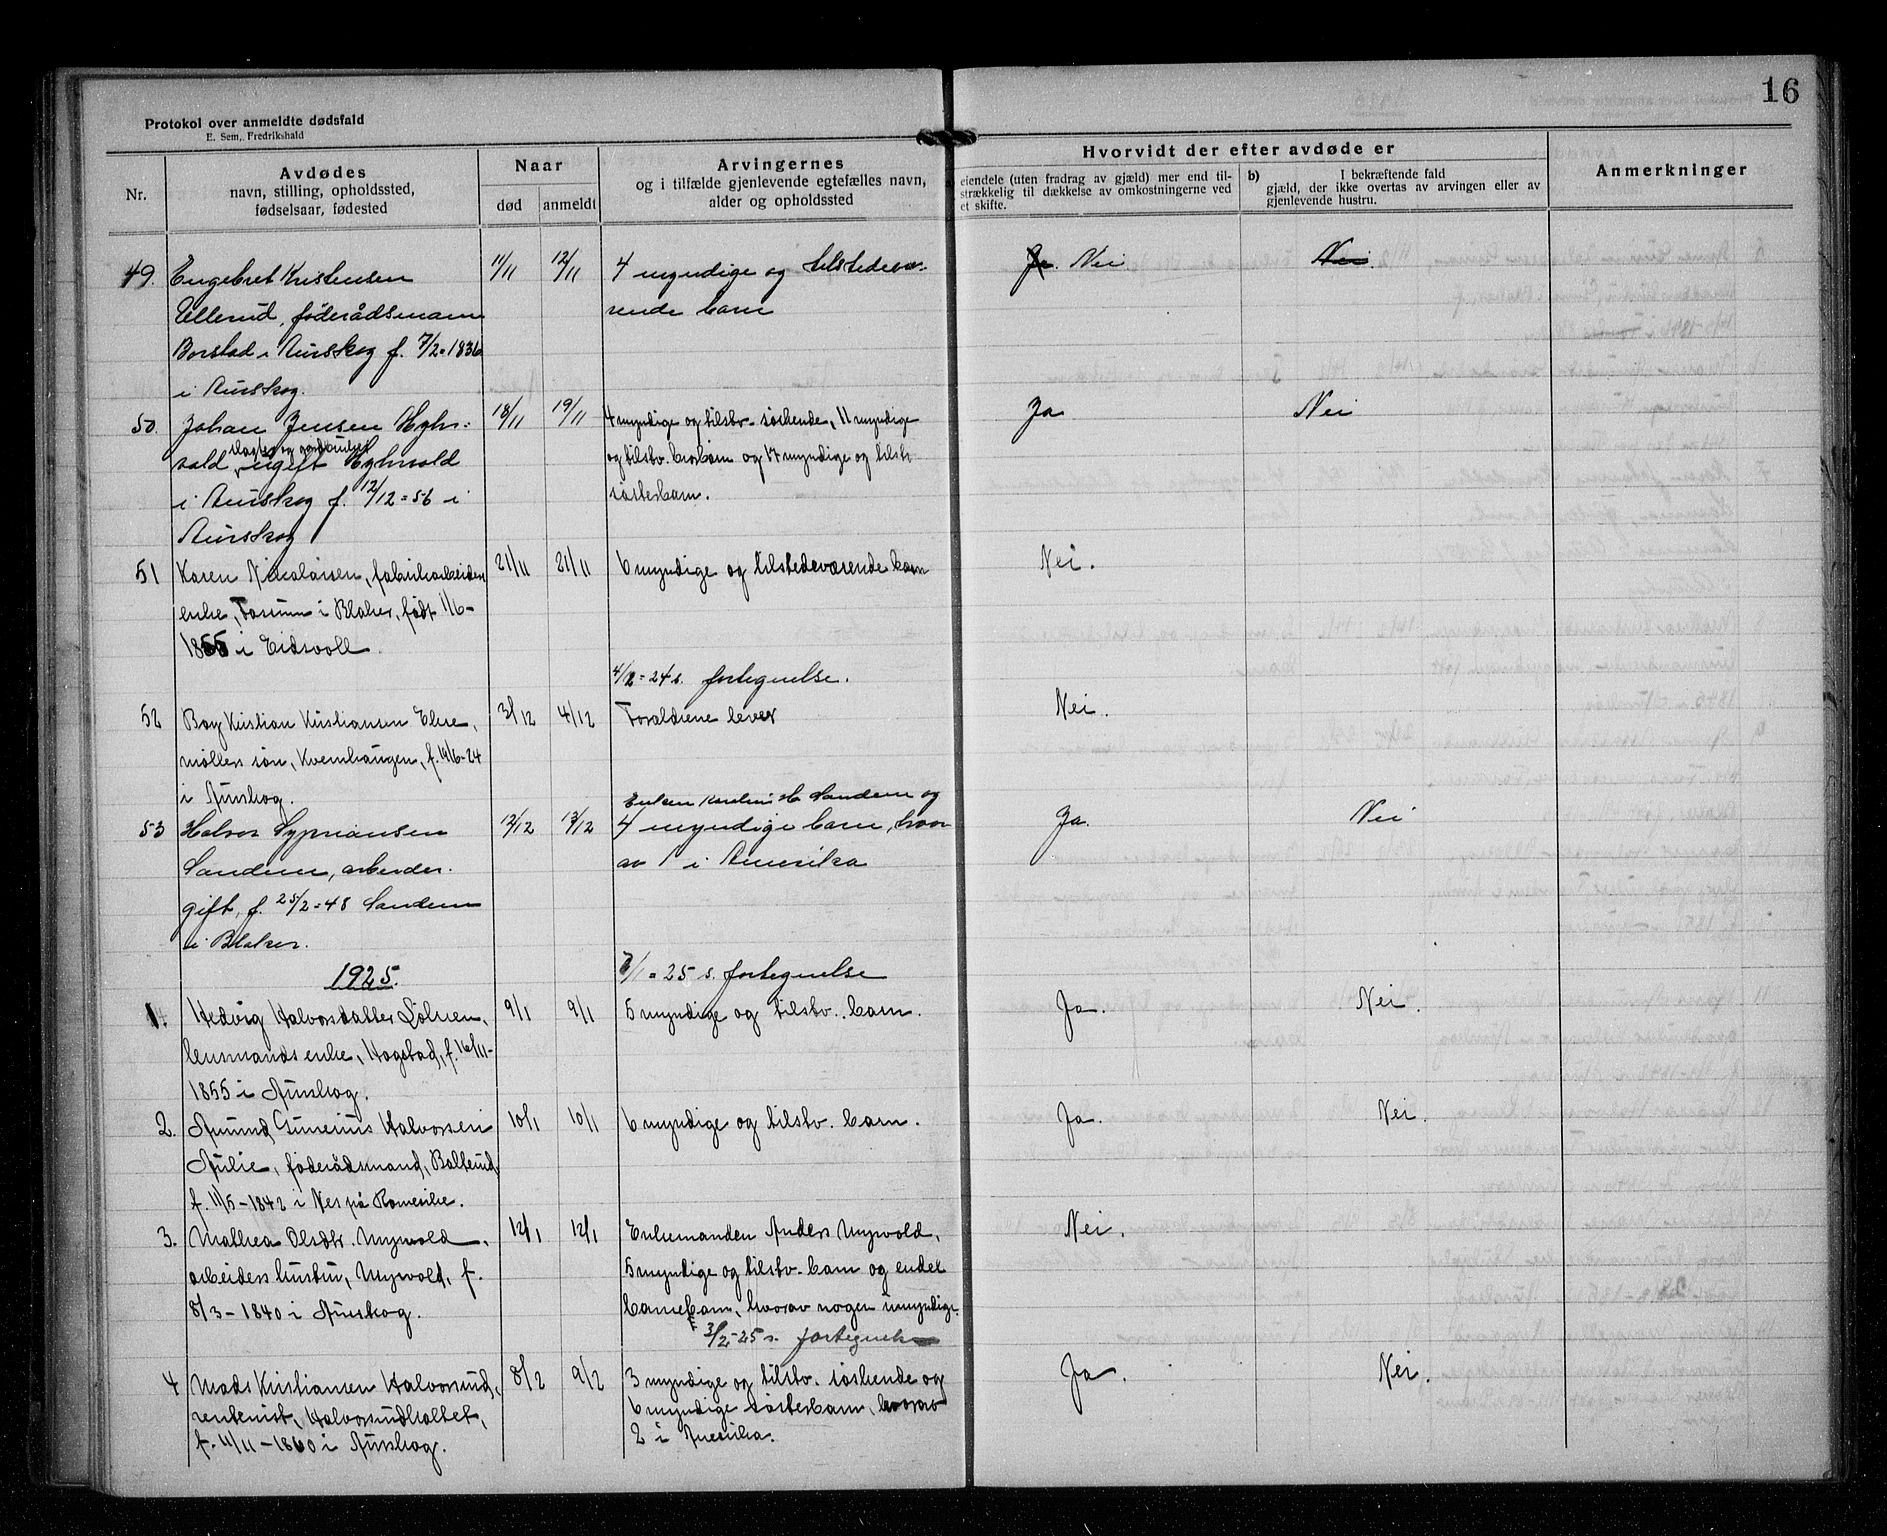 16
Protokol over anmeldte dødsfald
E. Sem, Fredrikshald
Nr.
Avdødes
navn, stilling, opholdssted,
fødselsaar, fødested
Naar
død anmeldt
Arvingernes
og i tilfælde gjenlevende egtefælles navn,
alder og opholdssted
Hvorvidt der efter avdøde er
eiendele (uten fradrag av gjæld) mer end til-
strækkelig til dækkelse av omkostningerne ved
et skifte.
b) I bekræftende fald
gjæld, der ikke overtas av arvingen eller av
gjenlevende hustru.
Anmerkninger
49. Engebret Kristensen 11/11 12/11 4 myndige og tilstedevæ- Ja. Nei Nei.
Ullerud, føderådsmann rende barn
Borstad i Aurskog f. 7/2-1836
i Aurskog.
50. Johan Jensen 18/11 19/11 4 myndige og tilstv. søskende, 11 myndige Ja Nei
vold, ugift og tilstv. brorbarn og 17 myndige og tilstv
i Aurskog f. 12/12=56 i søsterbarn.
Aurskog
51 Karen Nikolaisen, fabrikarbeider 21/11 21/11 6 myndige og tilstedeværende barn Nei.
enke, Fossum i Blaker, født 1/6-
1855 i Eidsvoll.
4/12=24 s. fortegnelse.
52 Boy Kristian Kristiansen Else, 3/12 4/12 Forældrene lever Nei.
møllers søn, Kvernhaugen, f. 19/6-24
i Aurskog.
Enken H. Sandem og
53 Halvor Sypriansen 12/12 13/12 4 myndige barn, hvor Ja. Nei
Sandem, arbeider. av 1 i Amerika
gift, f. 25/2=48 Sandem
i Blaker.
1925.
7/1=25 s. fortegnelse
1. Hedvig Halvorsdatter Løken, 9/1 9/1 5 myndige og tilstv. barn. Ja. Nei.
lensmands enke, Hogstad, f. 16/11-
1855 i Aurskog.
2. Amund Gunerius Halvorsen 10/1 10/1 6 myndige og tilstv. barn. Ja. Nei.
Aulie, føderådsmand, Balterud,
f. 11/5-1842 i Nes på Romerike.
3. Mathea Olsdtr. Myrvold, 12/1 12/1 Enkemanden Anders Myrvold, Nei.
arbeiders hustru, Myrvold, f. 5 myndige og tilstv. barn og endel
8/3-1840 i Aurskog. barnebarn, hvorav nogen umyndige.
3/2-25 s. fortegnelse
4 Mads Kristiansen Halvorsrud, 8/2 9/2 3 myndige og tilstv. søskende og Ja. Nei.
rentenist, Halvorsrudkollet, 6 myndige søsterbarn, hvorav
f. 11/11-1860 i Aurskog. 2 i Amerika.